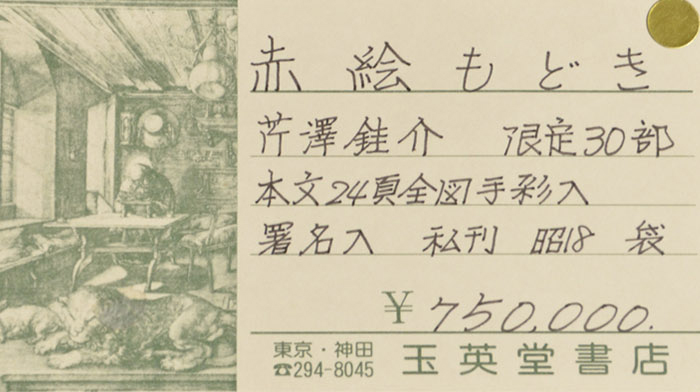 赤絵もどき
芹澤銈介 限定30部
本文24頁全図手彩入
署名入 私刊 昭18 袋
¥750,000.
東京・神田
☎294-8045
玉英堂書店